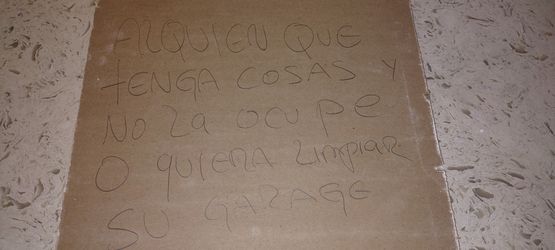 ALQUIEN QUE
TENGA COSAS Y
NO La OCUPE
O QUIERA LIMPIAR
SU GARAGE